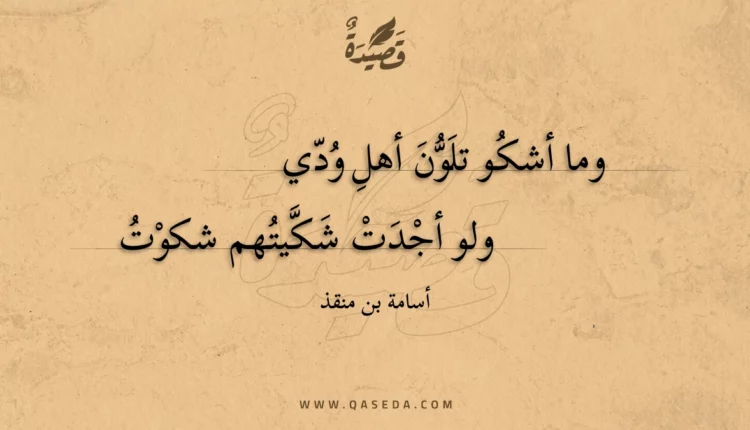 قَصِيْدَةٌ
وما أشكُو تلَوُّنَ أهلِ وُدّي
ولو أجْدَتْ شَكَّيتُهم شكوْتُ
أسامة بن منقذ
WWW.QASEDA.COM